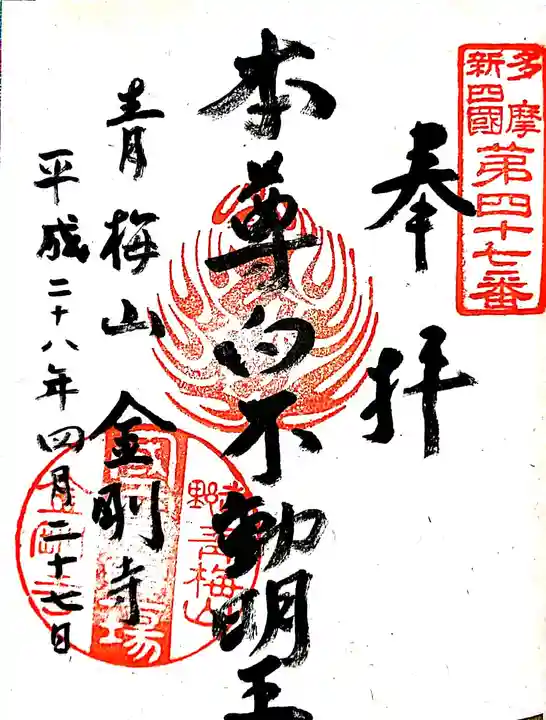 多摩
新四國
第四十七番
奉拝
本尊白不動明王
青梅山金剛寺
平成二十八年四月二十七日
青梅山
場